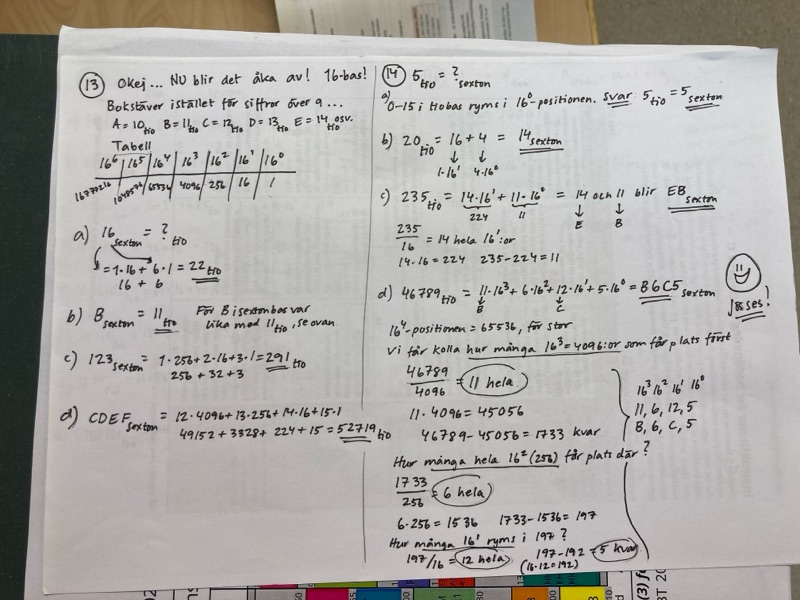 13 Okej... NU blir det åka av! 16-bas!
Bokstäver istället för siffror över 9...
A=10tio B=11tio C=12tio D=13tio E=14tio osv.
Tabell
16⁶ 16⁵ 16⁴ 16³ 16² 16¹ 16⁰
16777216 1048576 65536 4096 256 16 1
a) 16sexton = ?tio
= 1·16 + 6·1 = 22tio
16 + 6
b) Bsexton = 11tio För B i sextonbas var
lika med 11tio, se ovan
c) 123sexton = 1·256+2·16+3·1=291tio
256 + 32 + 3
d) CDEFsexton = 12·4096+13·256+14·16+15·1
49152 + 3328 + 224 + 15 = 52719tio
14 5tio = ?sexton
a) 0-15 i tiobas ryms i 16⁰-positionen. Svar 5tio = 5sexton
b) 20tio = 16 + 4 = 14sexton
1·16¹ 4·16⁰
c) 235tio = 14·16¹ + 11·16⁰ = 14 och 11 blir EBsexton
224 11 E B
235/16 = 14 hela 16¹:or
14·16 = 224 235-224=11
d) 46789tio = 11·16³ + 6·16² + 12·16¹ + 5·16⁰ = B6C5sexton
B C
16⁴-positionen = 65536, för stor
Vi får kolla hur många 16³=4096:or som får plats först
46789/4096 = 11 hela
11·4096 = 45056
46789-45056 = 1733 kvar
Hur många hela 16² (256) får plats där?
1733/256 = 6 hela
6·256 = 1536 1733-1536=197
Hur många 16¹ ryms i 197?
197/16 = 12 hela 197-192 = 5 kvar
(16·12=192)
16³ 16² 16¹ 16⁰
11, 6, 12, 5
B, 6, C, 5
ses!